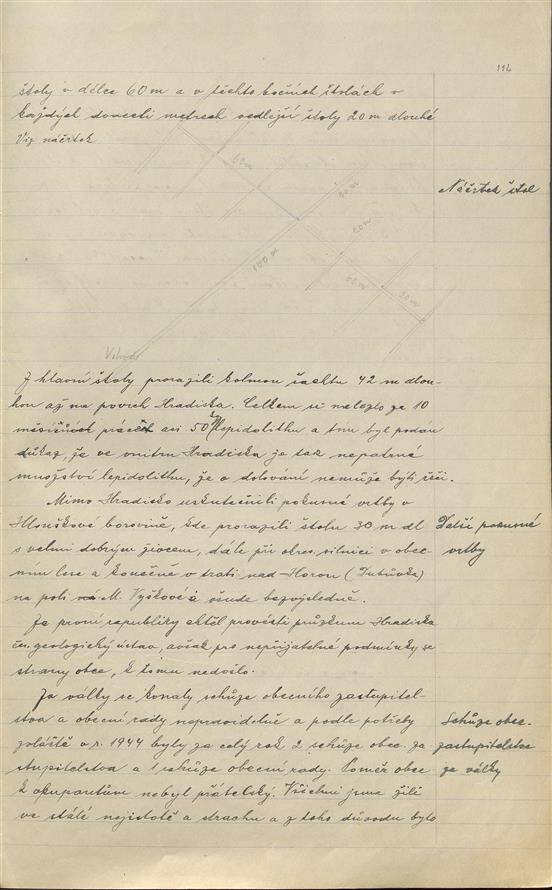 114
štoly v délce 60 m a v těchto bočních štolách v
každých dvaceti metrech vedlejší štoly 20 m dlouhé
Viz náčrtek
Náčrtek štol
60 m
20 m
20 m
100 m
60 m
20 m
Vchod
Z hlavní štoly prorazili kolmou šachtu 42 m dlou-
hou až na povrch Hradiska. Celkem se nalezlo za 10
práce asi 50 q lepidolithu a tím byl podán
důkaz, že ve vnitru Hradiska je tak nepatrné
množství lepidolithu, že o dolování nemůže býti řeči.
Mimo Hradisko uskutečnili pokusné vrtby v
Hlouškově borovině, kde prorazili štolu 30 m dl
Další pokusné
s velmi dobrým živcem, dále při okres. silnici v obec-
vrtby
ním lese a konečně v trati nad Horou (Dubůvka)
na poli M. Vyškové a všude bezvýsledně.
Za první republiky chtěl provésti průzkum Hradiska
čs. geologický ústav, avšak pro nepřijatelné podmínky se
strany obce, k tomu nedošlo.
Za války se konaly schůze obecního zastupitel-
stva a obecní rady nepravidelně a podle potřeby
Schůze obec.
zvláště v r. 1944 byly za celý rok 2 schůze obec. za
zastupitelstva
stupitelstva a 1 schůze obecní rady. Poměr obce
za války
k okupantům nebyl přátelský. Všichni jsme žili
ve stálé nejistotě a strachu a z toho důvodu bylo